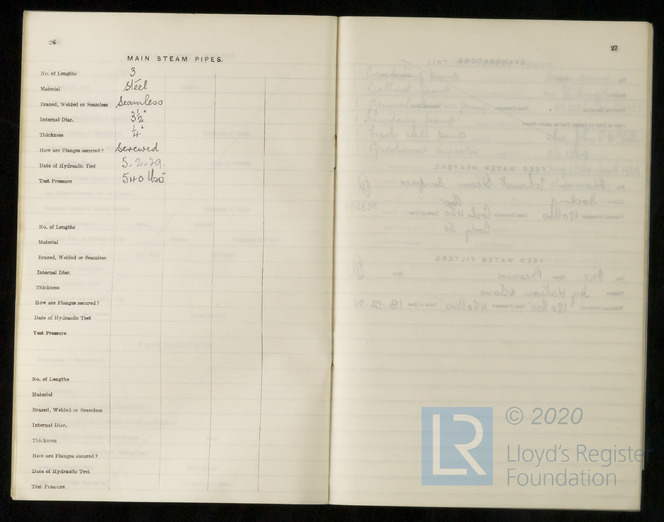 26
MAIN STEAM PIPES.
No. of Lengths 3
Material Steel
Brazed, Welded or Seamless Seamless
Internal Diar. 3½"
Thickness ¼"
How are Flanges secured? Screwed
Date of Hydraulic Test 5.2.29.
Test Pressure 540 lbs
No. of Lengths
Material
Brazed, Welded or Seamless
Internal Diar.
Thickness
How are Flanges secured?
Date of Hydraulic Test
Test Pressure
No. of Lengths
Material
Brazed, Welded or Seamless
Internal Diar.
Thickness
How are Flanges secured?
Date of Hydraulic Test
Test Pressure
27
LR © 2020
Lloyd's Register
Foundation